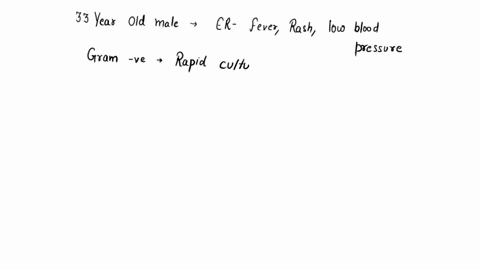 33 Year Old male → ER- fever, Rash, low blood
pressure
Gram -ve → Rapid cultu